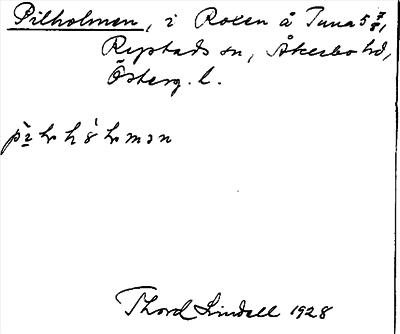 Pilholmen, i Roxen å Tuna 5 7/8,
Rystads sn, Åkerbo hd,
Österg. l.
Thord Lindell 1928